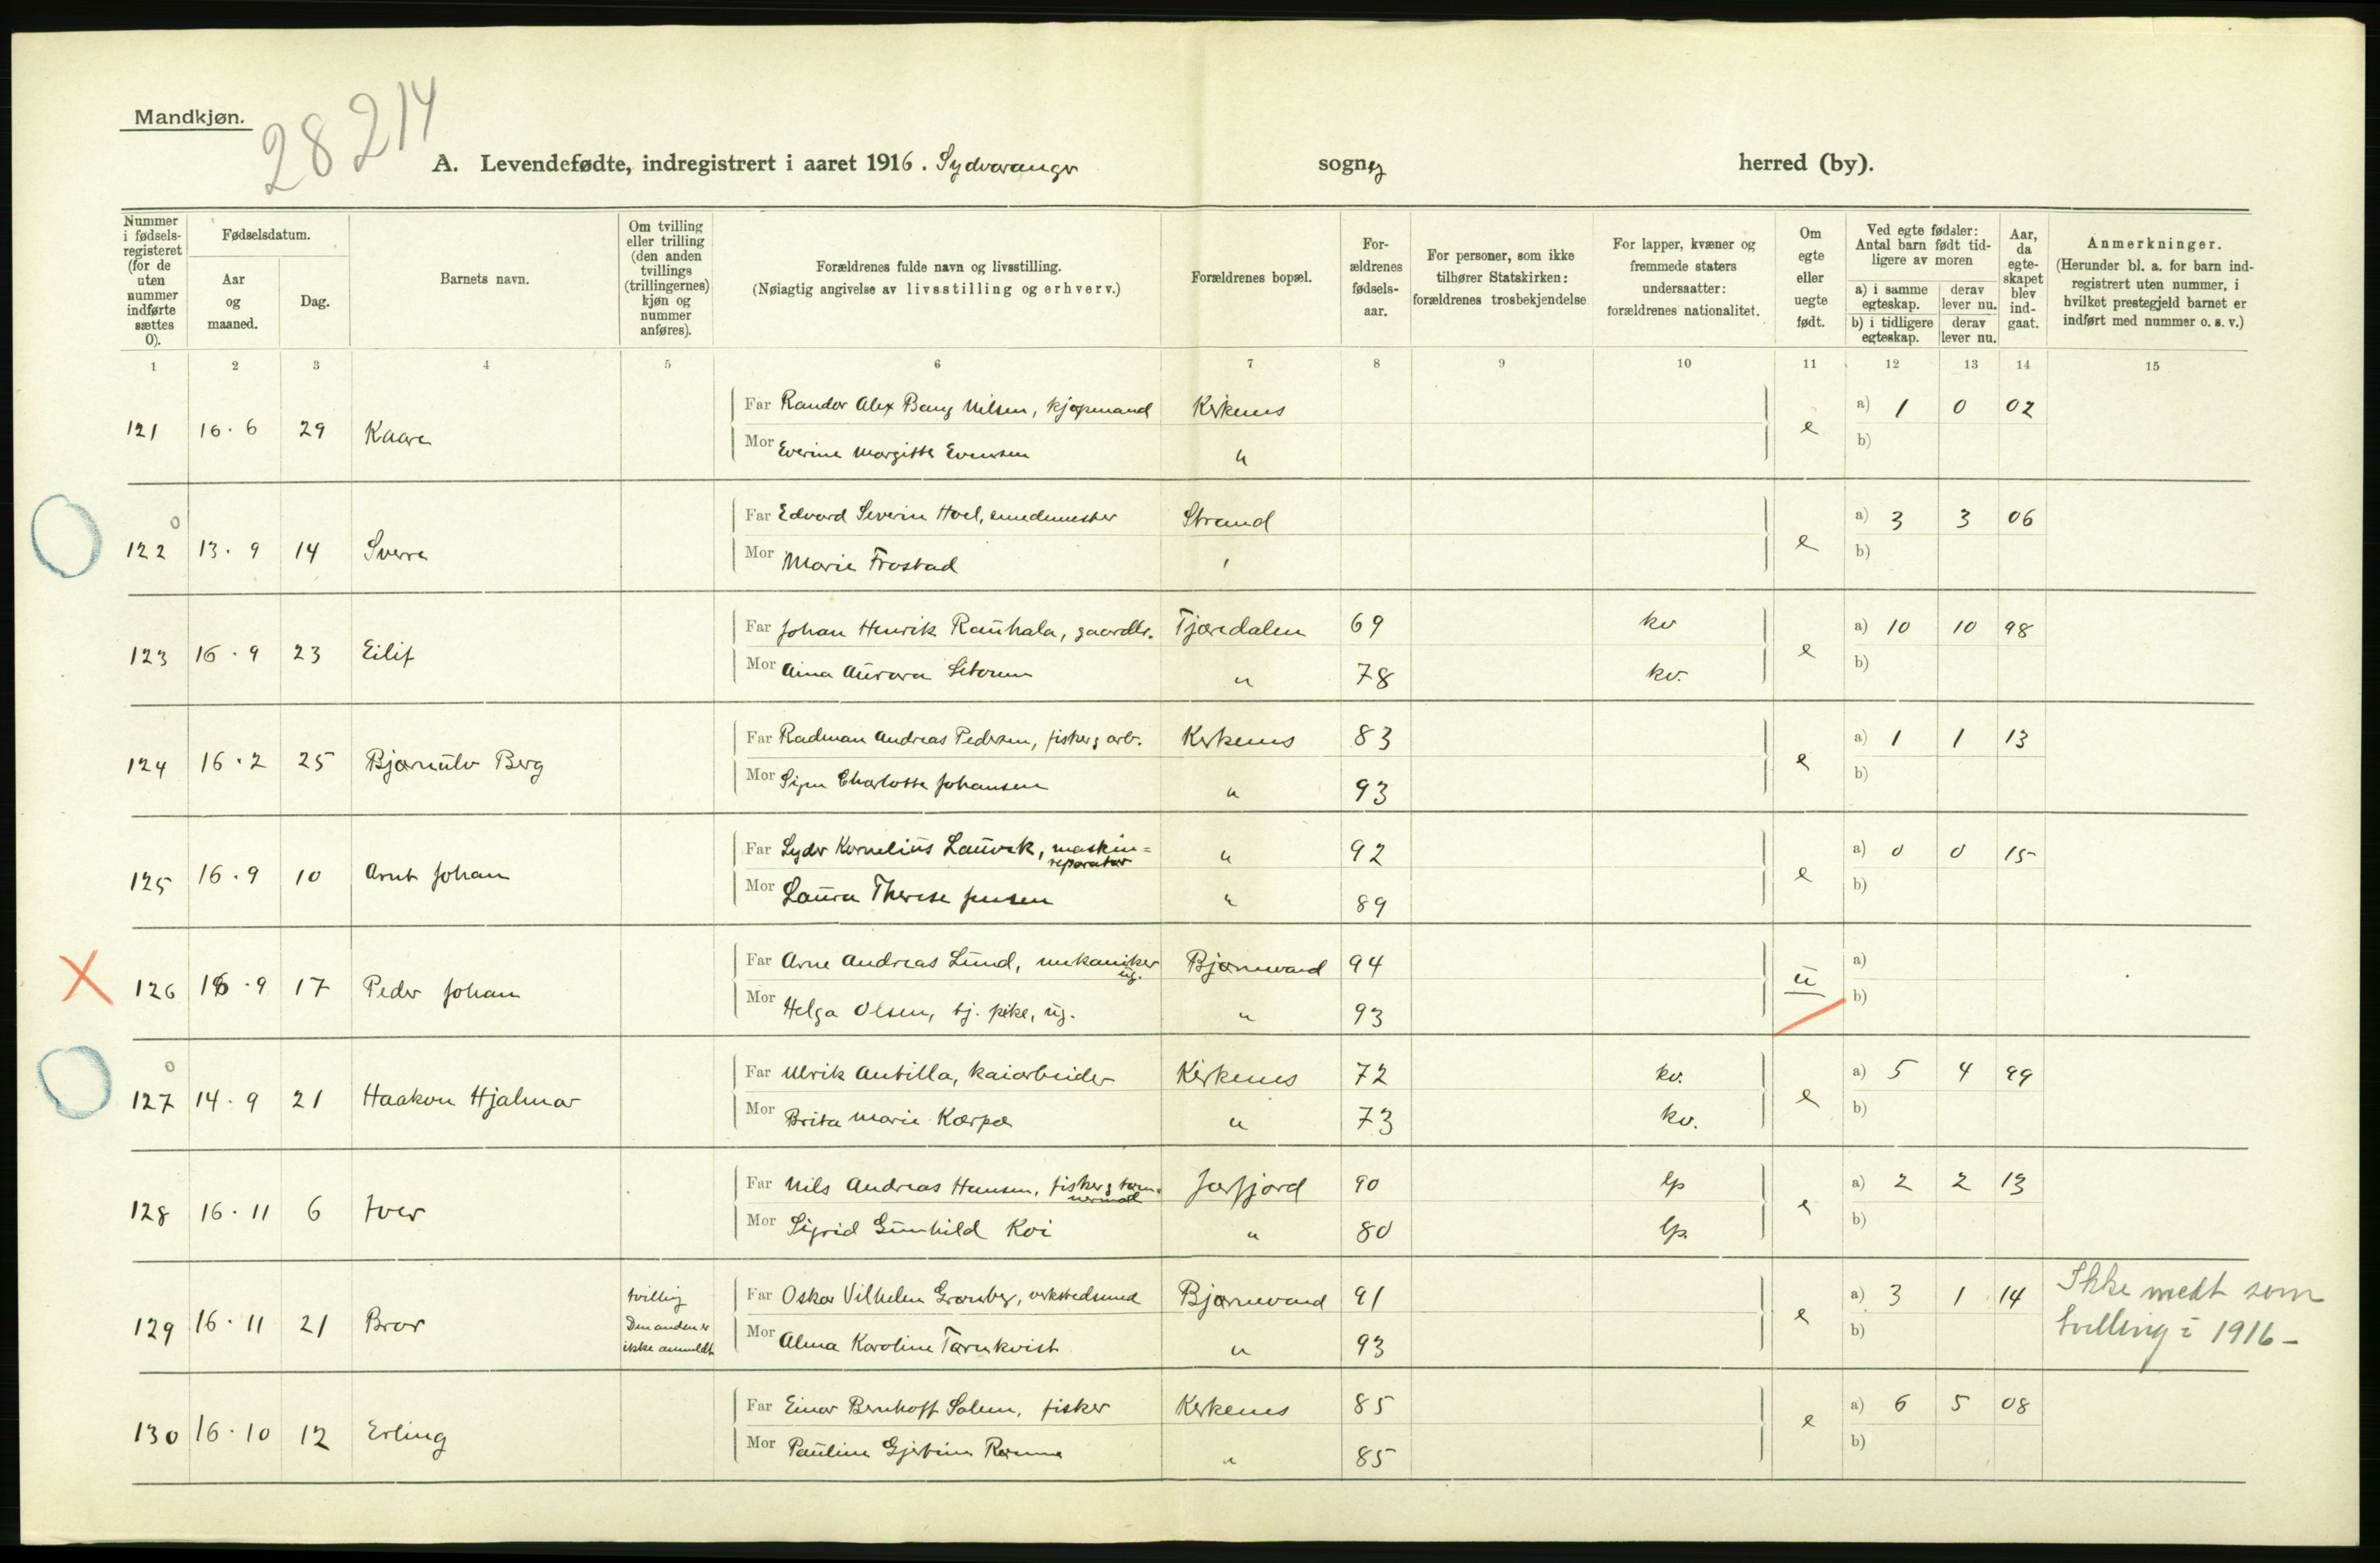 Mandkjøn.
28214
A. Levendefødte, indregistrert i aaret 1916. Sydvaranger sogn, herred (by).
Nummer i fødsels-registeret (for de uten nummer indførte sættes 0).
Fødselsdatum.
Aar og maaned.
Dag.
Barnets navn.
Om tvilling eller trilling (den anden tvillings (trillingernes) kjøn og nummer anføres).
Forældrenes fulde navn og livsstilling.
(Nøiagtig angivelse av livsstilling og erhverv.)
Forældrenes bopæl.
For-ældrenes fødsels-aar.
For personer, som ikke tilhører Statskirken: forældrenes trosbekjendelse
For lapper, kvæner og fremmede staters undersaatter: forældrenes nationalitet.
Om egte eller uegte født.
Ved egte fødsler: Antal barn født tid-ligere av moren
a) i samme egteskap.
derav lever nu.
b) i tidligere egteskap.
derav lever nu.
Aar, da egte-skapet blev ind-gaat.
Anmerkninger.
(Herunder bl. a. for barn ind-registrert uten nummer, i hvilket prestegjeld barnet er indført med nummer o. s. v.)
1 2 3 4 5 6 7 8 9 10 11 12 13 14 15
Far Randor Alex Bang Nilsen, kjøpmand Kirkenes a) 1 0 02
121 16.6 29 Kaare e
Mor Everine Margitte Evensen " b)
Far Edvard Severin Hoel, smedmester Strand a) 3 3 06
0
122 13.9 14 Sverre e
Mor Marie Frostad " b)
Far Johan Henrik Rauhala, gaardbr. Tjæredalen 69 kv a) 10 10 98
123 16.9 23 Eilif e
Mor Aina Aurora " 78 kv. b)
Far Radman Andreas Pedersen, fisker g arb. Kirkenes 83 a) 1 1 13
124 16.2 25 Bjørnulv Berg e
Mor Signe Charlotte Johansen " 93 b)
Far Syder Kornelius Laurek, maskin= " 92 a) 0 0 15
reparatør
125 16.9 10 Arnt Johan e
Mor Laura Therese Jensen " 89 b)
Far Arne Andreas Lund, mekaniker Bjørnevand 94 a)
ug.
126 16.9 17 Peder Johan u
Mor Helga Olsen, tj. pike, ug. " 93 b)
Far Ulrik Antilla, kaiarbeider Kirkenes 72 kv. a) 5 4 99
0
127 14.9 21 Haakon Hjalmar e
Mor Brita Marie Karpæ " 73 kv. b)
Far Nils Andreas Hansen, fisker g tøm= Jarfjord 90 lp a) 2 2 13
mermand
128 16.11 6 Iver e
Mor Sigrid Gunhild Koi " 80 lp. b)
Far Oskar Vilhelm Granberg, verkstedsmed Bjørnevand 91 a) 3 1 14 Ikke meldt som
129 16.11 21 Bror tvilling Den anden er ikke anmeldt e tvilling i 1916 –
Mor Alma Karoline Tørnkvist " 93 b)
Far Einar Bernhoff Salem, fisker Kirkenes 85 a) 6 5 08
130 16.10 12 Erling e
Mor Pauline Gjertine " 85 b)